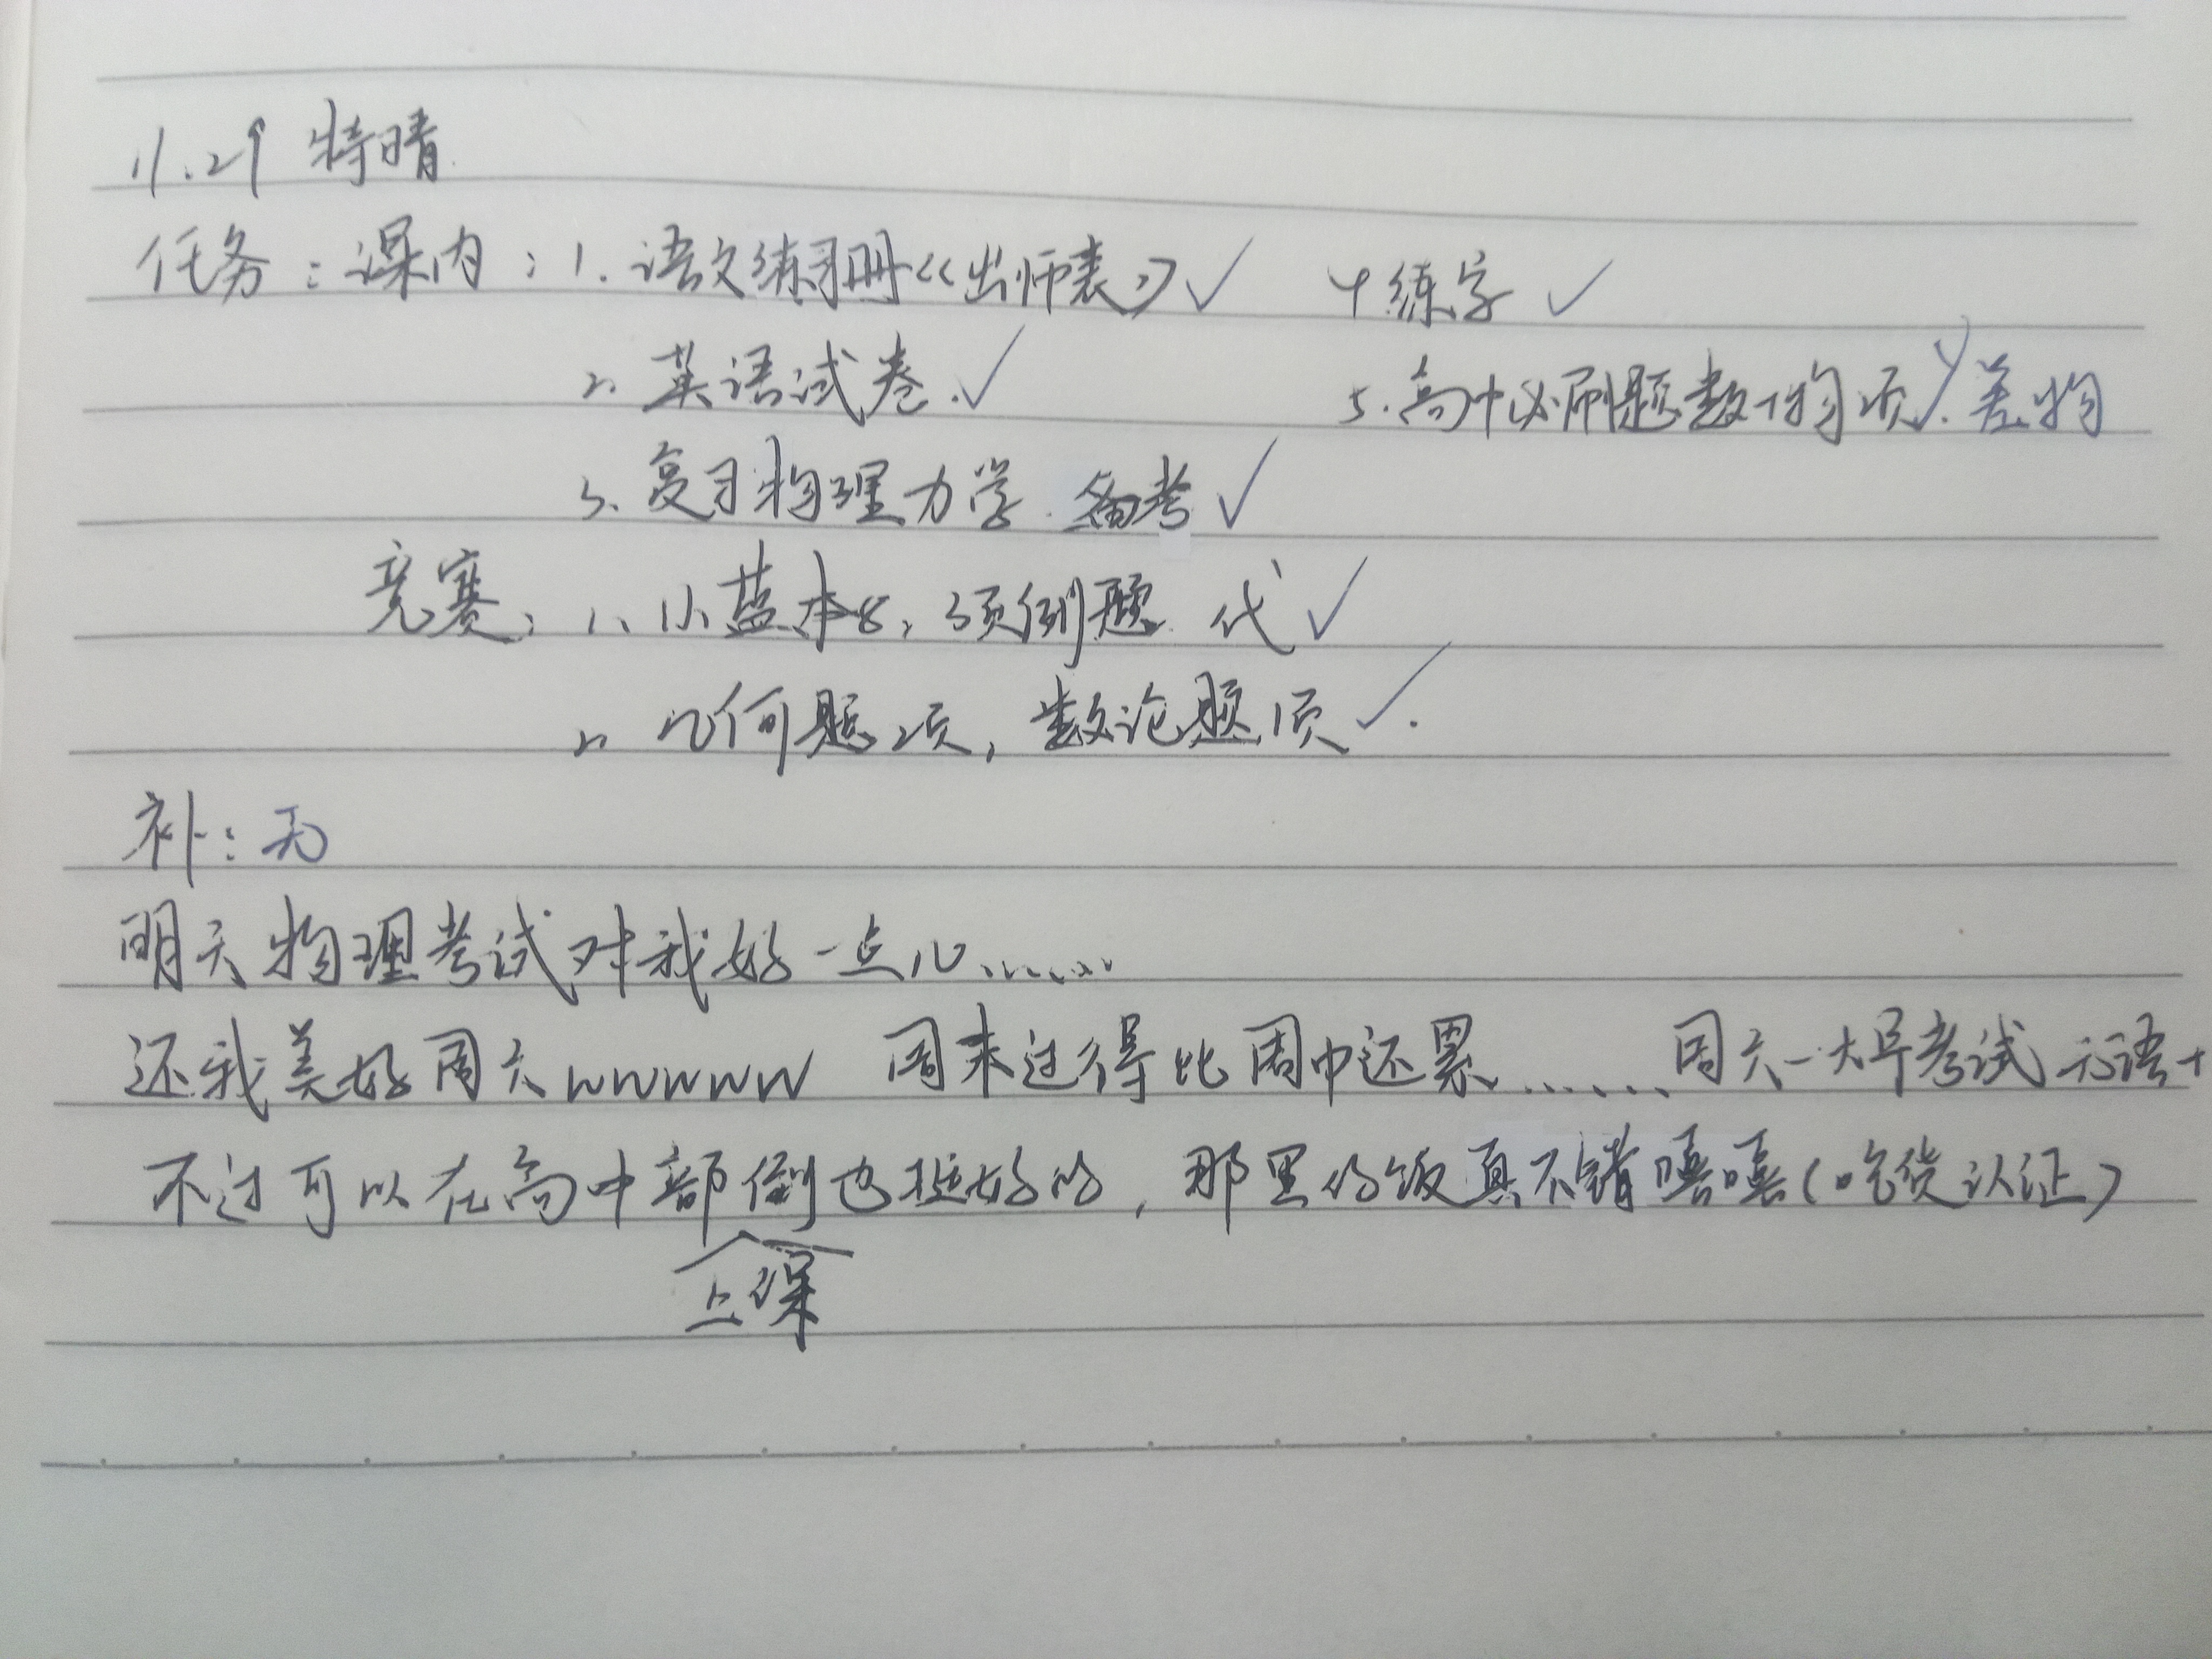 11.29 特晴.
任务：课内：1.语文练习册《出师表》✓ 4.练字 ✓
2.英语试卷.✓ 5.高中必刷题数+物2页✓.差物
3.复习物理力学.备考✓
竞赛：1.小蓝本8，3页例题.代✓
2.几何题2页，数论题1页✓.
补：无
明天物理考试对我好一点儿……
还我美好周六wwwww 周末过得比周中还累……周六一大早考试无语+
不过可以在高中部上课倒也挺好的，那里的饭真不错嘻嘻(吃货认证)